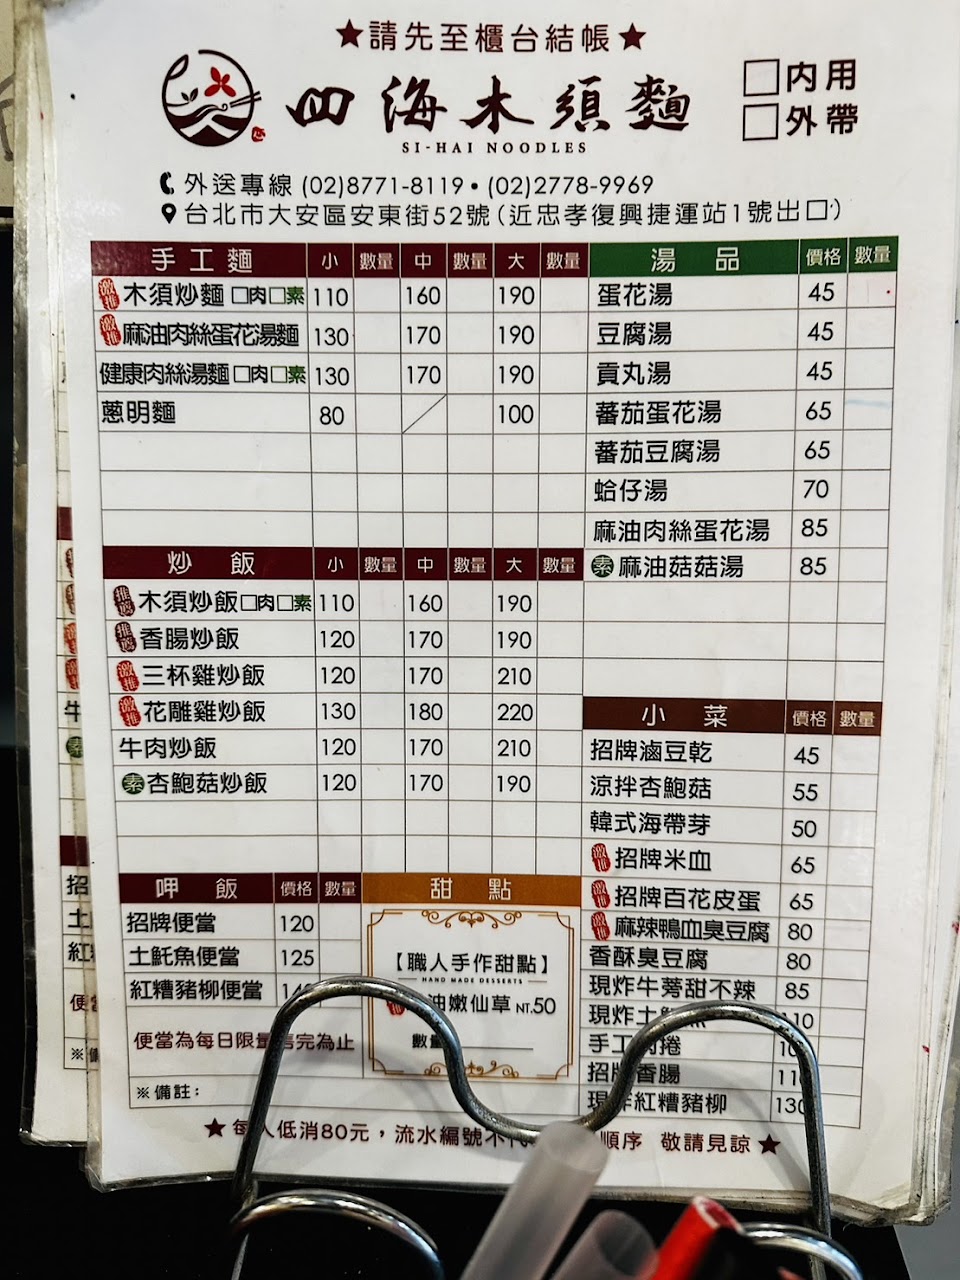 ★請先至櫃台結帳★
四海木須麵
SI-HAI NOODLES
□內用
□外帶
外送專線 (02)8771-8119 • (02)2778-9969
台北市大安區安東街52號(近忠孝復興捷運站1號出口)
手工麵 小 數量 中 數量 大 數量
激推 木須炒麵 □肉□素 110 160 190
激推 麻油肉絲蛋花湯麵 130 170 190
健康肉絲湯麵 □肉□素 130 170 190
蔥明麵 80 100
炒飯 小 數量 中 數量 大 數量
推薦 木須炒飯□肉□素 110 160 190
推薦 香腸炒飯 120 170 190
激推 三杯雞炒飯 120 170 210
激推 花雕雞炒飯 130 180 220
牛肉炒飯 120 170 210
素 杏鮑菇炒飯 120 170 190
呷飯 價格 數量
招牌便當 120
土魠魚便當 125
紅糟豬柳便當
便當為每日限量售完為止
※備註:
甜點
【職人手作甜點】
HAND MADE DESSERTS
油嫩仙草 NT.50
數量
湯品 價格 數量
蛋花湯 45
豆腐湯 45
貢丸湯 45
蕃茄蛋花湯 65
蕃茄豆腐湯 65
蛤仔湯 70
麻油肉絲蛋花湯 85
素 麻油菇菇湯 85
小菜 價格 數量
招牌滷豆乾 45
涼拌杏鮑菇 55
韓式海帶芽 50
激推 招牌米血 65
激推 招牌百花皮蛋 65
激推 麻辣鴨血臭豆腐 80
香酥臭豆腐 80
現炸牛蒡甜不辣 85
現炸土 110
手工肉捲
招牌香腸
現炸紅糟豬柳 130
★每人低消80元，流水編號不 順序 敬請見諒★